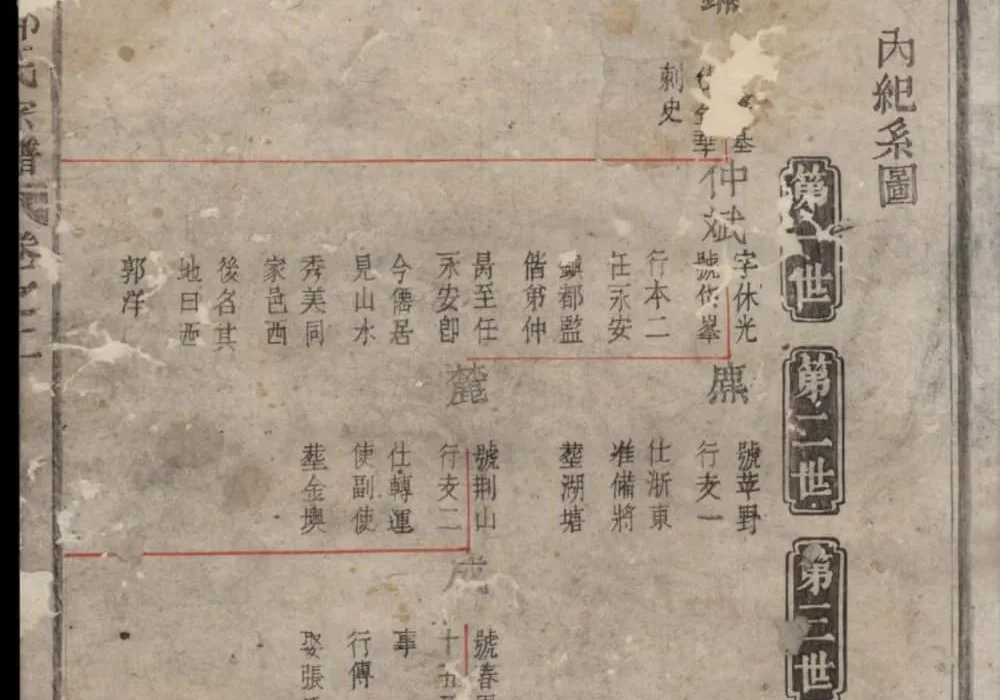 內紀系圖
第一世
第二世
第三世
刺史
仲斌
字休光
號佐峯
行本二
任永安
鎮都監
偕弟仲
昺至任
永安卽
今僑居
見山水
秀美同
家邑西
後名其
地曰西
郭洋
麃
號苹野
行友一
仕浙東
准備將
塟湖塘
麓
號荆山
行友二
仕轉運
使副使
塟金墺
號春
十五
事
行傳
娶張